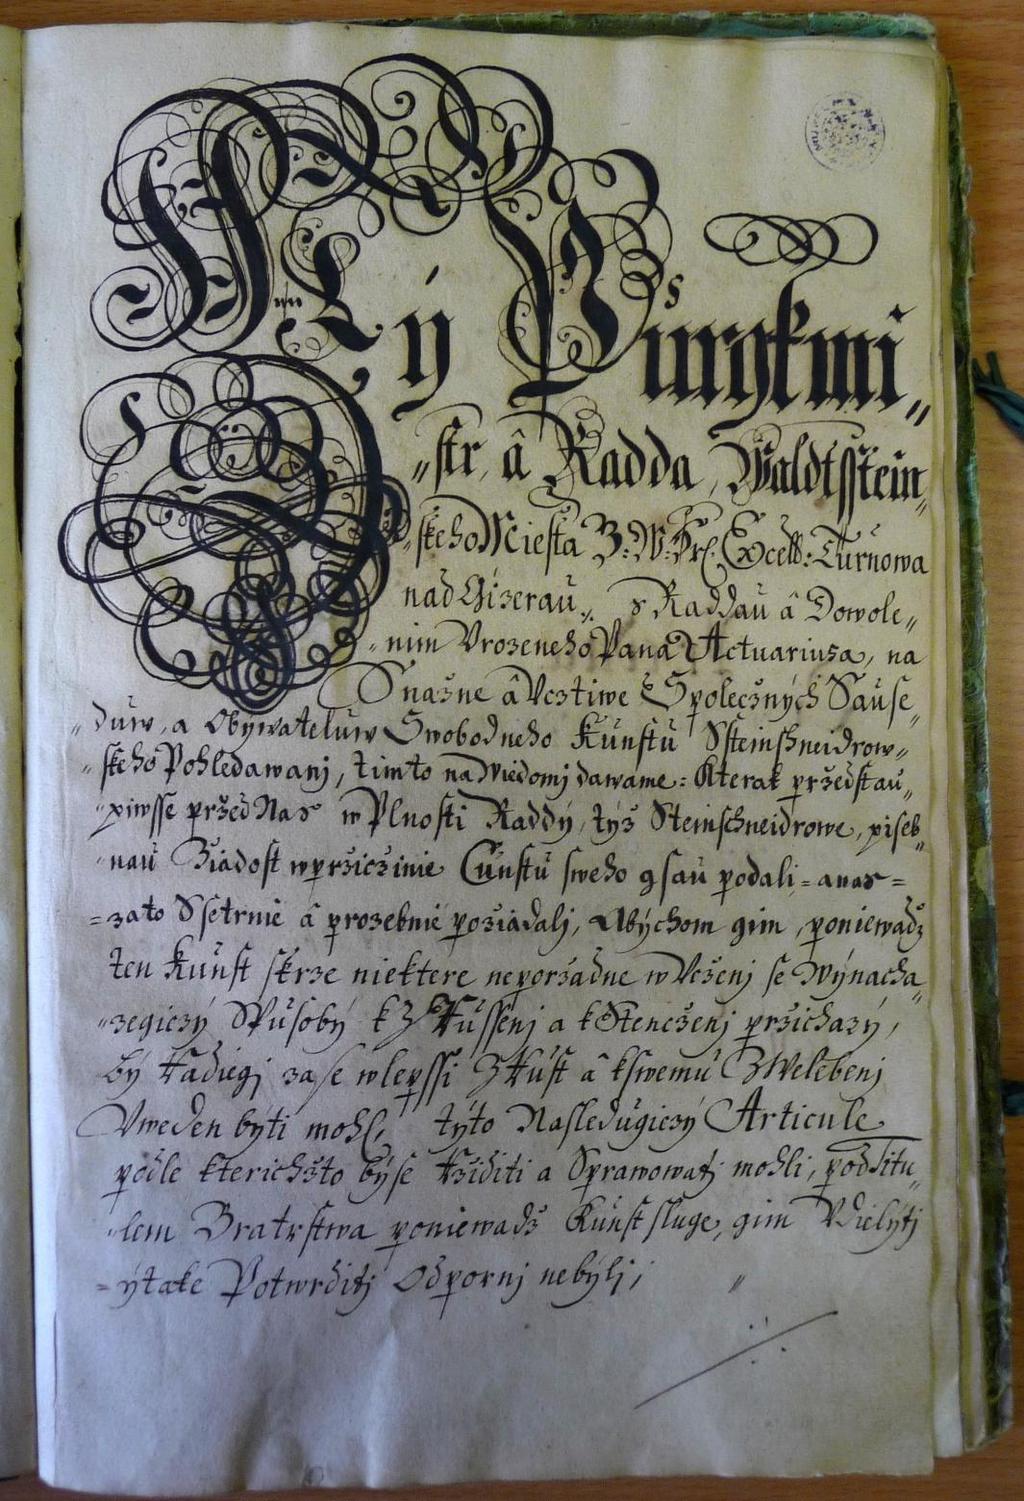 My Pürgkmi„
„str, â Radda, Waldtsstein„
„skeho Miesta B: W: Hr: Excell: Türnowa
nad Gizeraü, s Raddaü â Dowole„
„nim Vrozeneho Pana Actuariusa, na
Snažne â Vcztiwe Spolecžných Saüse„
„düw, a Obywatelüw Swobodneho Künstü Ssteinschneidrow„
„skeho Pohledawanj, timto na Wiedomj dawame: Kterak pržedstaü„
„piwsse pržed Nas w Plnosti Raddÿ, týž Steinschneidrowe, piseb„
„naü Žiadost w pržicžinie Cünstü sweho gsaü podali = a nas =
= zato Ssetrnie â prozebnie požiadalj, Abÿchom gim, poniewadž
ten Künst skrze niektere neporžadne w Vcženj se Wÿnacha„
„zegiczÿ Spüsobÿ k Zküssenj a k Stencženj pržichazÿ,
bÿ kadiegj zase w lepssi Zrüst â k swemü Zwelebenj
Vweden bÿti mohl, tÿto Nasledügiczÿ Articule
podle kterichžto bÿ se Ržiditi a Sprawowatj mohli, pod Titu„
„lem Bratrstwa poniewadž Künst sluge, gim Vdielÿtj
= ÿ take Potwrditj Odpornj nebÿlj,